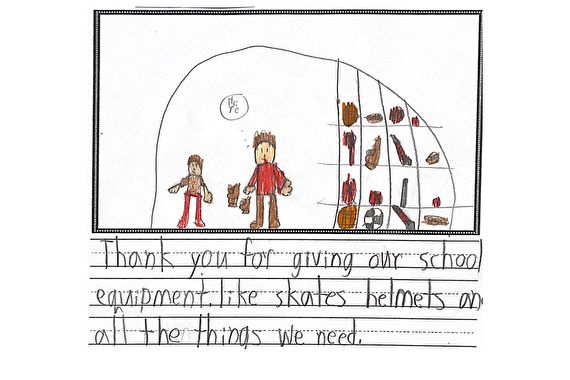 Here
Thank you for giving our school
equipment. like skates helmets an
all the things we need.